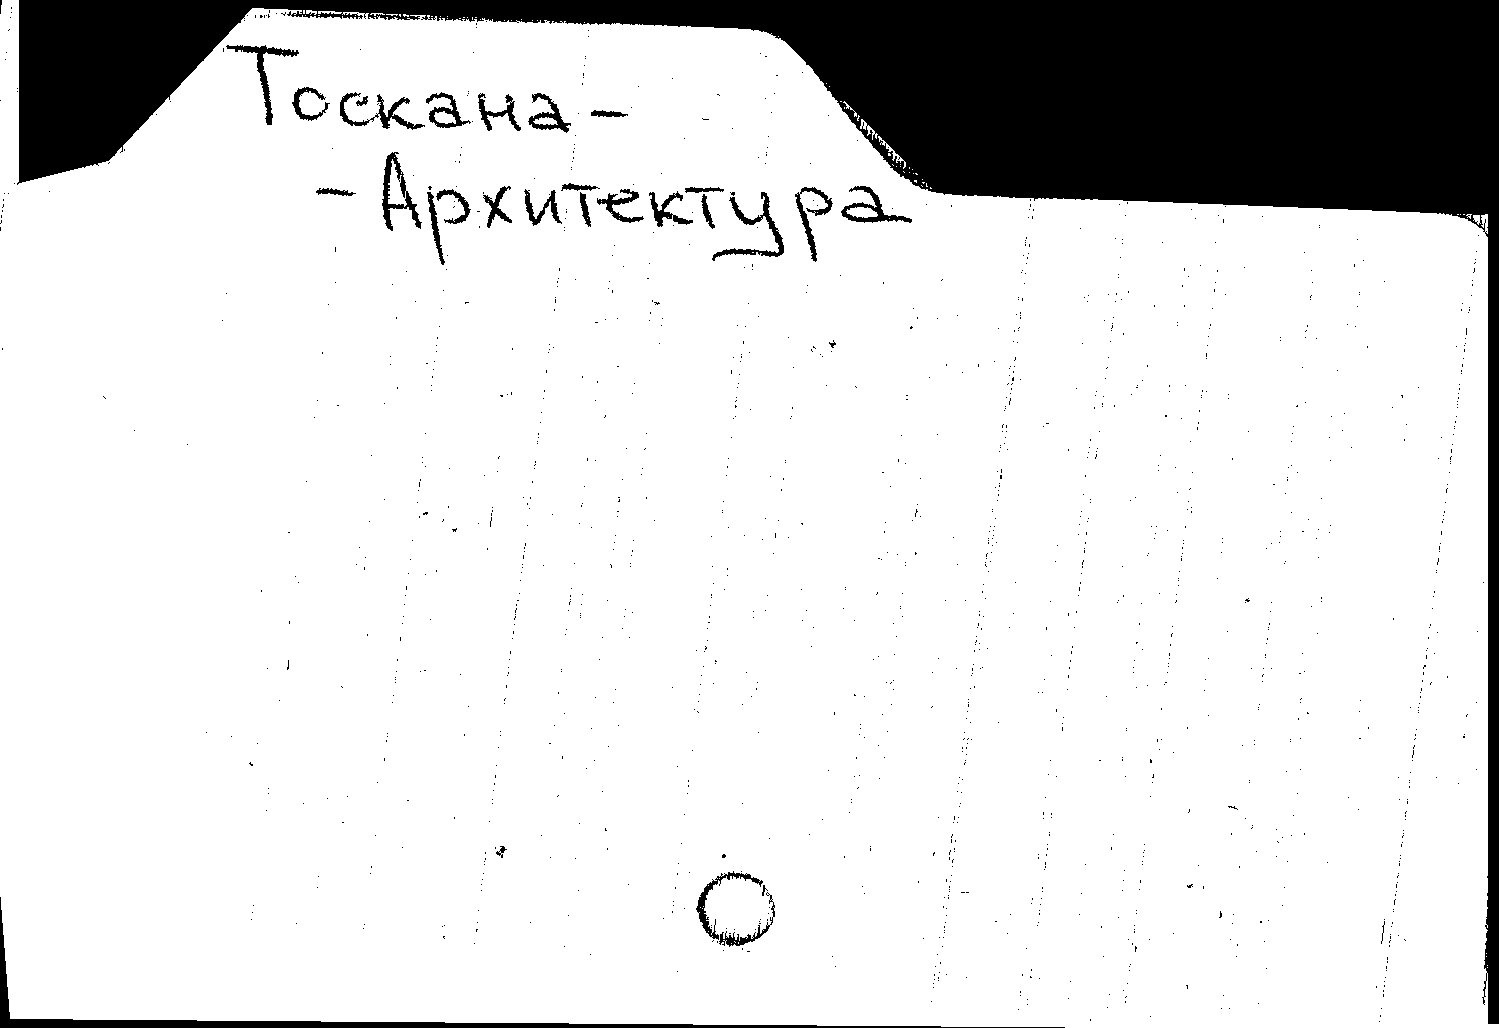 Тоскана -
- Архитектура